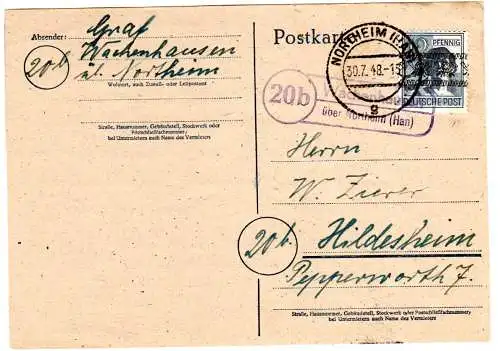 Absender: Graf
20b Wachenhausen
ül. Northeim
Wohnort, auch Zustell- oder Leitpostamt
Straße, Hausnummer, Gebäudeteil, Stockwerk oder
Postschließfachnummer;
bei Untermietern auch Name des Vermieters
Postkarte
NORTHEIM (HAN)
30.7.48.-15
g
PFENNIG
DEUTSCHE POST
20b
über Northeim (Han)
Herrn
W. Zierer
20b. Hildesheim
Pepperworth 7.
Straße, Hausnummer, Gebäudeteil, Stockwerk oder Postschließfachnummer;
bei Untermietern auch Name des Vermieters